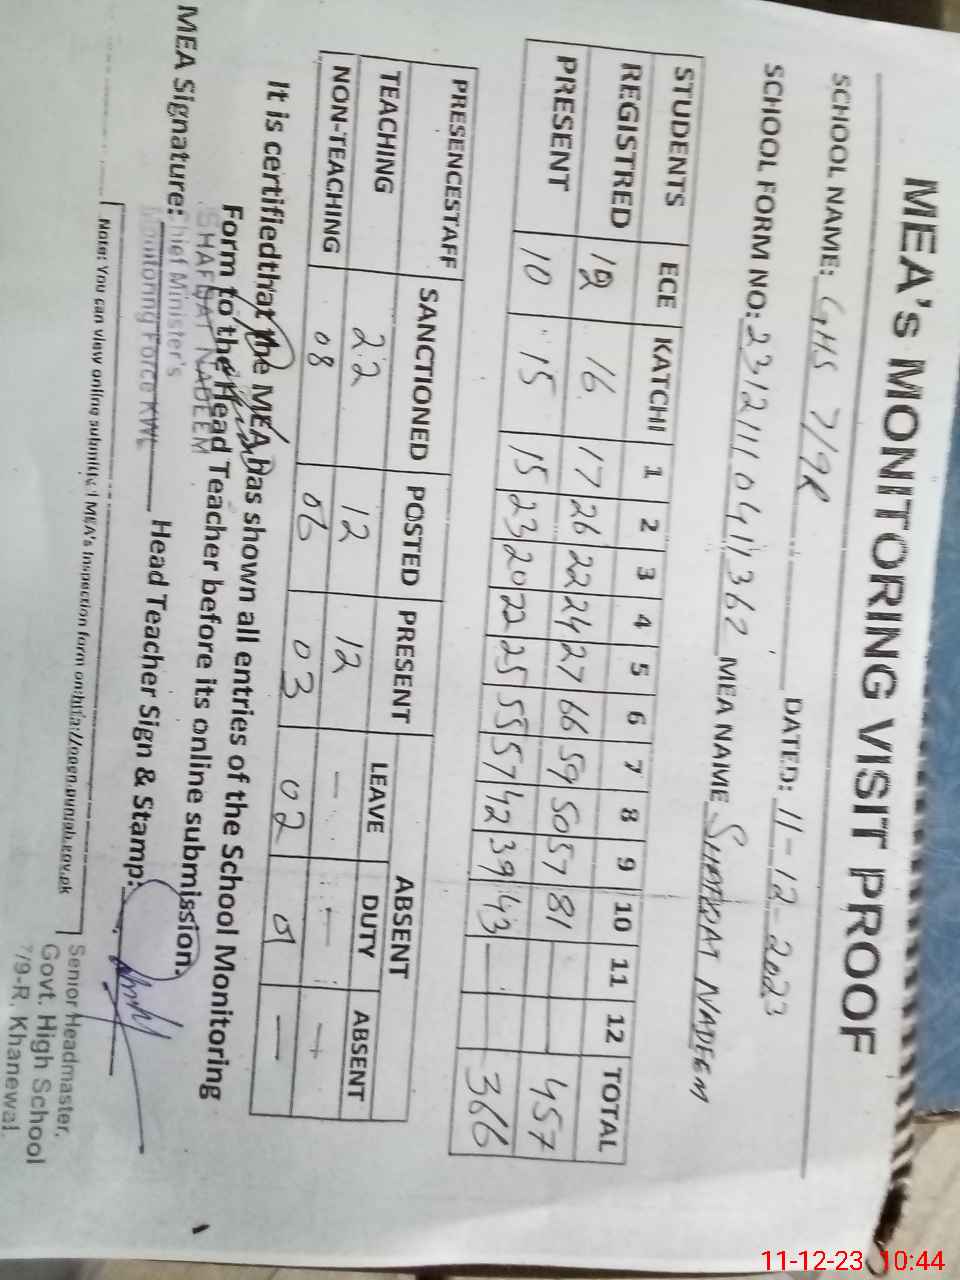 MEA's MONITORING VISIT PROOF
SCHOOL NAME: GHS 7/9R DATED: 11-12-2023
SCHOOL FORM NO: 23121110417362 MEA NAME SHAFQAT NADEEM
STUDENTS ECE KATCHI 1 2 3 4 5 6 7 8 9 10 11 12 TOTAL
REGISTRED 12 16 17 26 22 24 27 66 59 50 57 81 457
PRESENT 10 15 15 23 20 22 25 55 57 42 39 43 — 366
PRESENCESTAFF SANCTIONED POSTED PRESENT ABSENT
LEAVE DUTY ABSENT
TEACHING 22 12 12 — — —
NON-TEACHING 08 06 03 02 01 —
It is certifiedthat the MEA has shown all entries of the School Monitoring
Form to the Head Teacher before its online submission.
SHAFQAT NADEEM
Chief Minister's
Monitoring Force KWL
MEA Signature: Head Teacher Sign & Stamp:
Note: You can view online submitted MEA's Inspection form on:
Senior Headmaster.
Govt. High School
7/9-R, Khanewal.
11-12-23 10:44